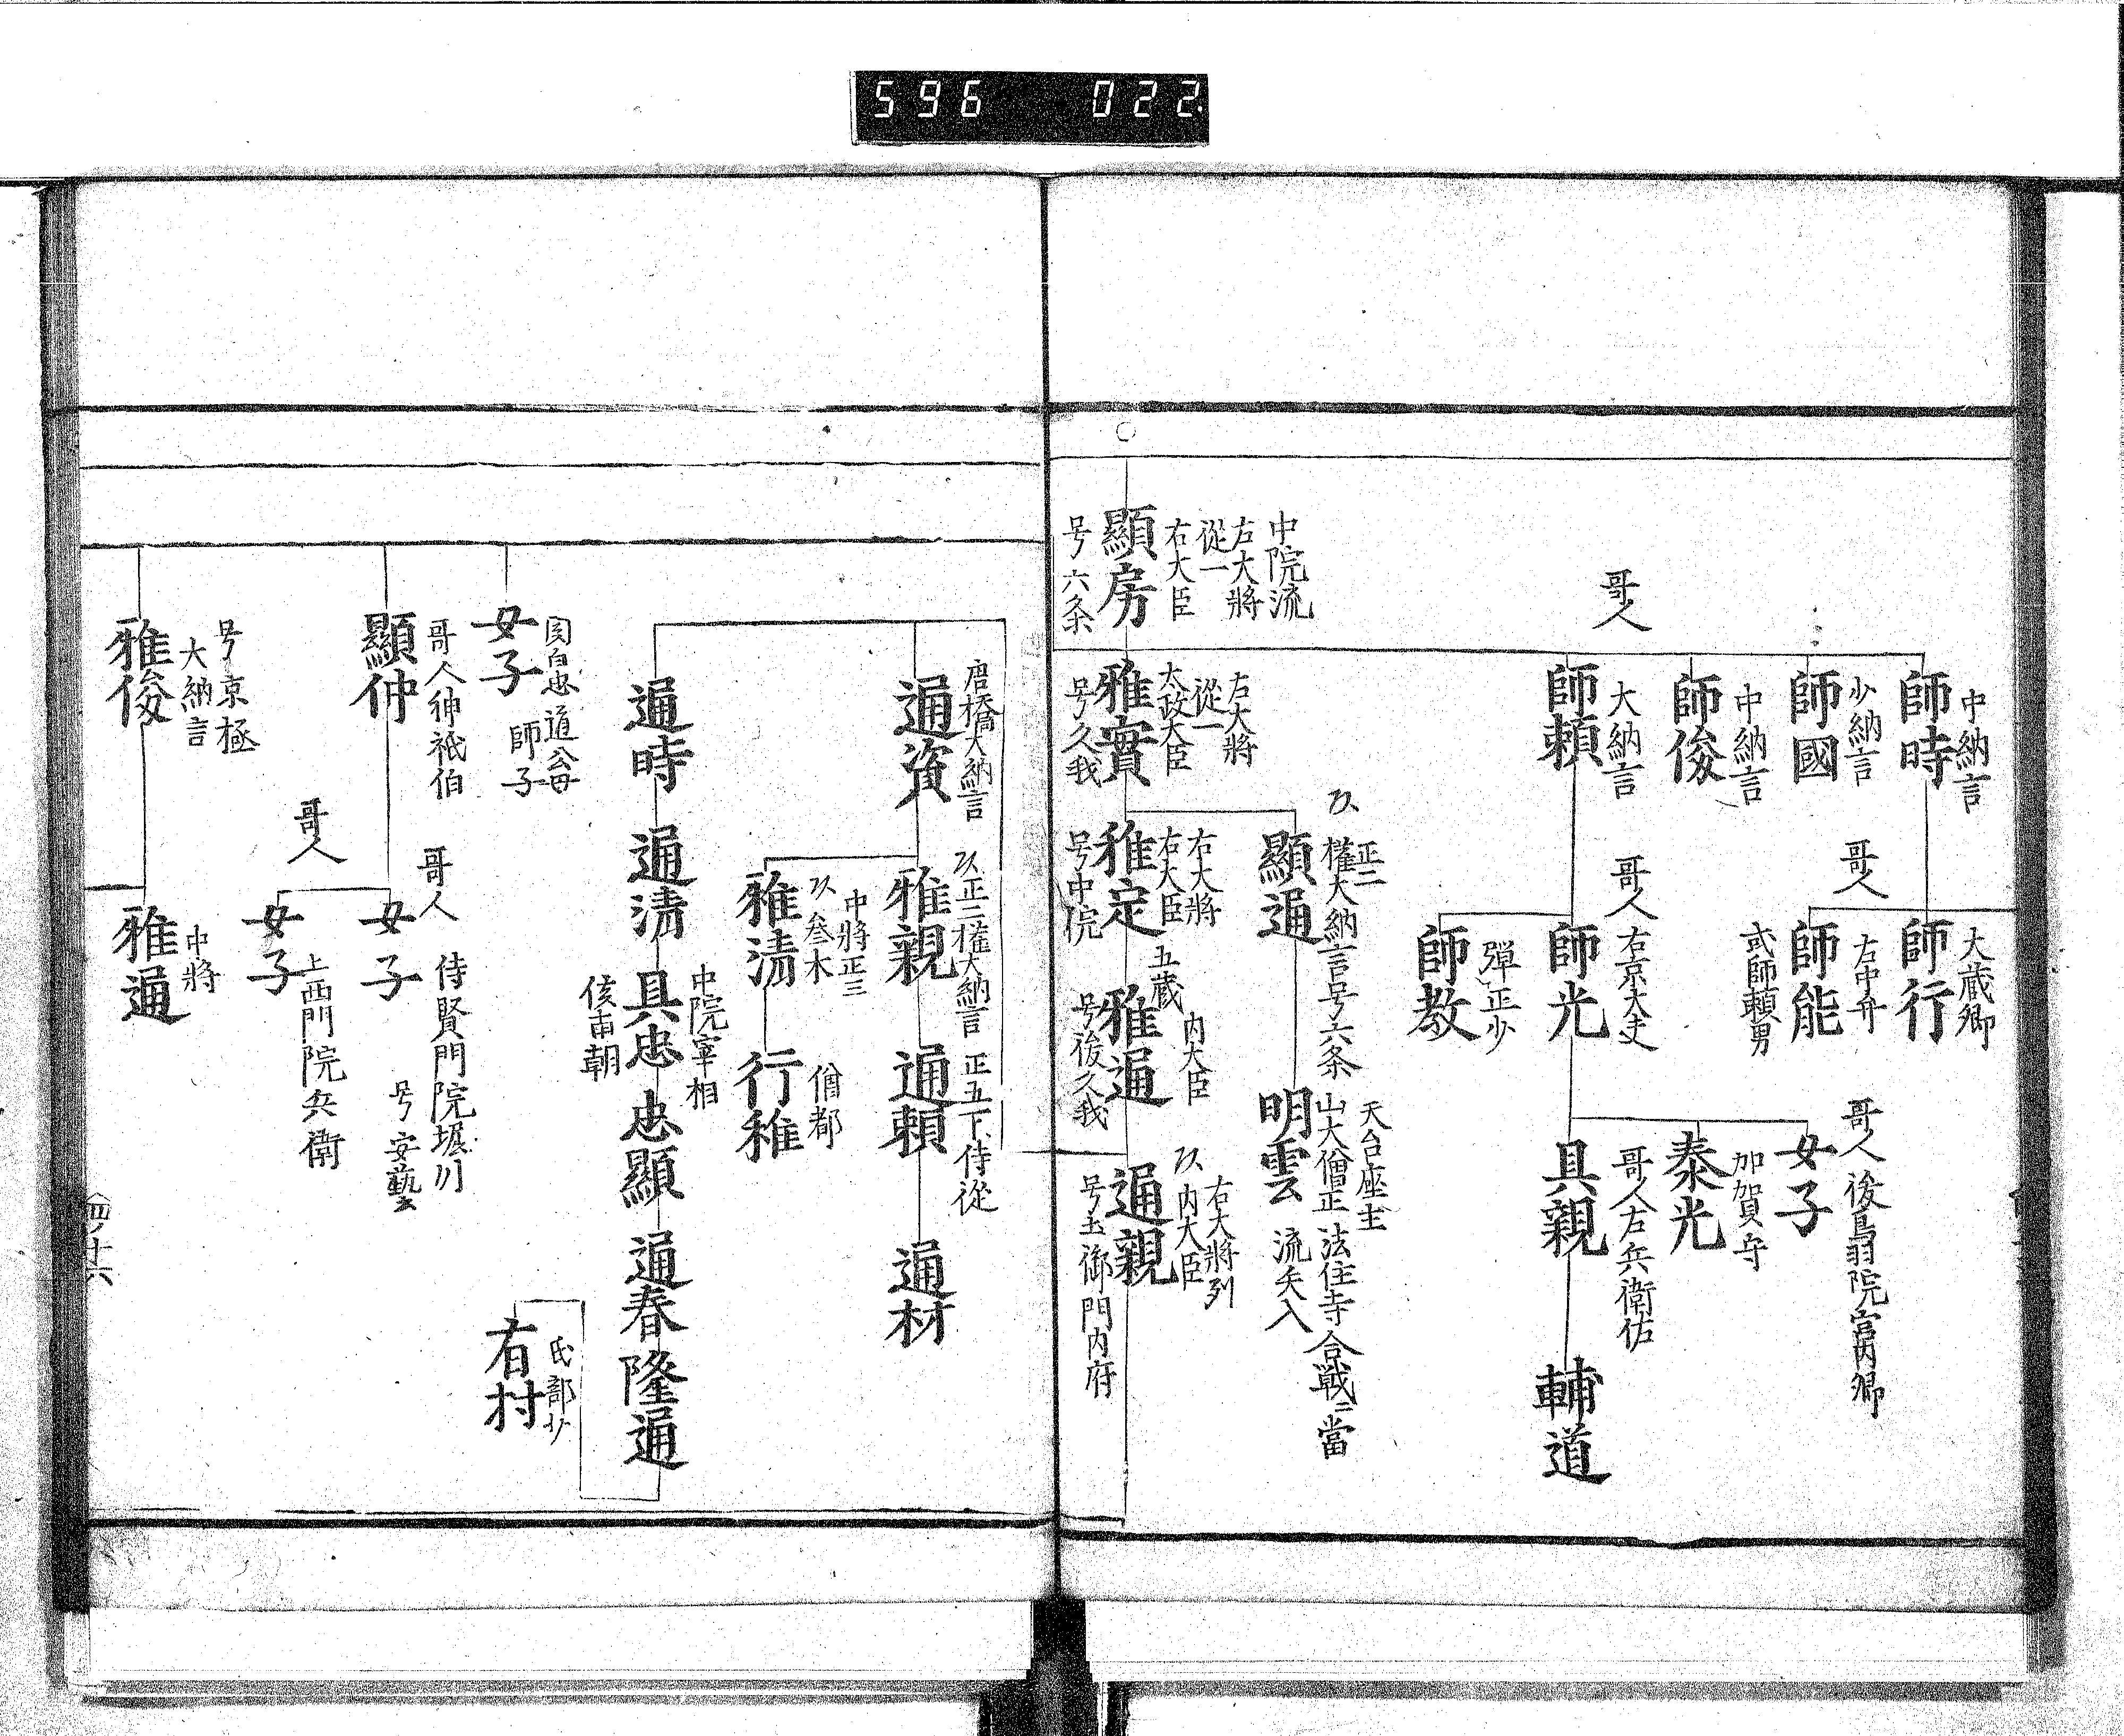 596 022
中納言
師時
大蔵卿
師行
少納言
師國
哥人
右中弁
師能
或師頼男
中納言
師俊
哥人
大納言
師頼
哥人
右京大夫
師光
彈正少
師教
哥人
後鳥羽院宮内卿
女子
加賀守
泰光
哥人左兵衛佐
具親
輔道
中院流
左大將
從一
右大臣
顯房
号六条
左大將
從一
太政大臣
雅實
号久我
正二
権大納言号六条
顯通
天台座主
山大僧正
法住寺合戦ニ當
流矢入
明雲
右大將
右大臣
雅定
号中院
五蔵
内大臣
雅通
号後久我
右大將列
内大臣
通親
号土御門内府
唐橋大納言
通資
正二権大納言
雅親
正五下侍從
通頼
通材
中將正三
叅木
雅清
僧都
行雅
通時
通清
中院宰相
具忠
侯南朝
忠顯
通春
隆通
民部少
有村
関白忠通公母
師子
女子
哥人神祇伯
顯仲
哥人
侍賢門院堀川
女子
号安藝
哥人
上西門院兵衛
女子
号京極
大納言
雅俊
中將
雅通
四ノ十六